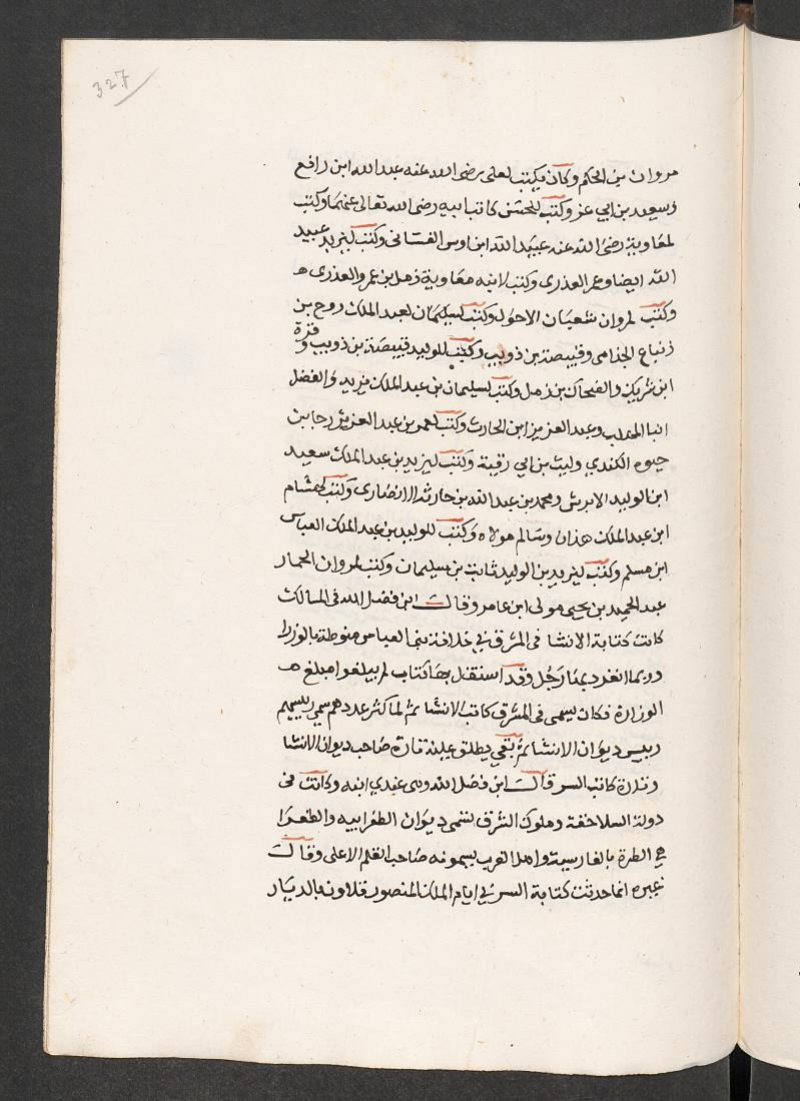 327
مروان بن الحكم وكان يكتب لعلى رضى الله عنه عبد الله ابن رافع
وسعيد بن ابي عز وكتب للحسن كاتب ابيه رضى الله تعالى عنهما وكتب
لمعاوية رضى الله عنه عبيد الله ابن اوس الغسانى وكتب ليزيد عبيد
الله ايضا وعمر العذرى وكتب لابنه معاوية زمل بن عمرو العذرى
وكتب لمروان شعبان الاحول وكتب لسليمان لعبد الملك روح بن
زنباع الجذامى وقبيصة بن ذويب وكتب للوليد قبيصة بن ذويب و قرة
ابن شريك والضحاك بن زمل وكتب لسليمان بن عبد الملك يزيد والفضل
ابنا المهلب وعبد العزيز ابن الحارث وكتب لعمر بن عبد العزيز رجا بن
حيوه الكندي وليث بن ابي رقية وكتب ليزيد بن عبد الملك سعيد
ابن الوليد الابرش ومحمد بن عبد الله بن حارثه الانصارى وكتب لهشام
ابن عبد الملك هذان وسالم مولاه وكتب للوليد بن عبد الملك العباس
ابن مسلم وكتب ليزيد بن الوليد ثابت بن سليمان وكتب لمروان الحمار
عبد الحميد بن يحيى مولى ابن عامر وقالــت ابن فضل الله فى المسالك
كانت كتابة الانشا فى المشرق في خلافة بنى العباس منوطة بالوزرا
وربما انفرد بها رجل وقد استقل بها كتاب لم يبلغوا مبلغ
الوزارة فكان يسمى فى المشرق كاتب الانشا ثم لما كثر عددهم سمي رئيسهم
رييس ديوان الانشا ثم بقى يطلق عليه تارة صاحب ديوان الانشا
وتارة كاتب السر قال ابن فضل الله وهى عندي انبه وكانت فى
دولة السلاجقة وملوك الشرق تسمى ديوان الطغراييه والطغرا
هي الطرة بالفارسية واهل الغرب يسمونه صاحب القلم الاعلى وقال
غيره انما حدثت كتابة السر في ايام الملك المنصور قلاون بالديار